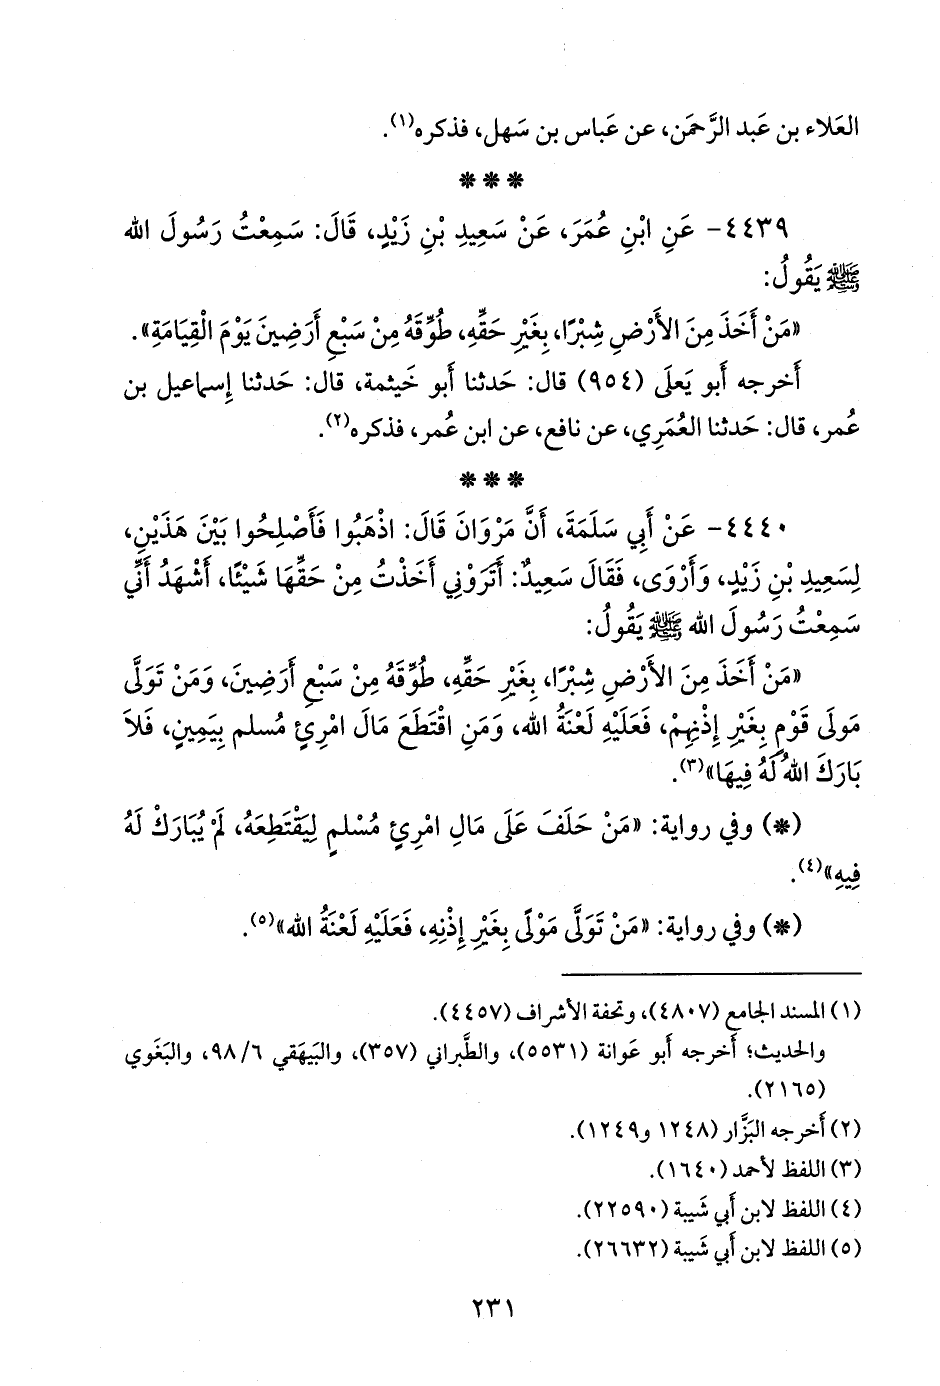 العَلاء بن عَبد الرَّحمَن، عن عَباس بن سَهل، فذكره(١).
* * *
٤٤٣٩- عَنِ ابْنِ عُمَرَ، عَنْ سَعِيدِ بْنِ زَيْدٍ، قَالَ: سَمِعْتُ رَسُولَ الله
ﷺ يَقُولُ:
«مَنْ أَخَذَ مِنَ الأَرْضِ شِبْرًا، بِغَيْرِ حَقِّهِ، طُوِّقَهُ مِنْ سَبْعِ أَرَضِينَ يَوْمَ الْقِيَامَةِ».
أَخرجه أَبو يَعلَى (٩٥٤) قال: حَدثنا أَبو خَيثمة، قال: حَدثنا إِسماعيل بن
عُمر، قال: حَدثنا العُمَري، عن نافع، عن ابن عُمر، فذكره(٢).
* * *
٤٤٤٠- عَنْ أَبِي سَلَمَةَ، أَنَّ مَرْوَانَ قَالَ: اذْهَبُوا فَأَصْلِحُوا بَيْنَ هَذَيْنِ،
لِسَعِيدِ بْنِ زَيْدٍ، وَأَرْوَى، فَقَالَ سَعِيدٌ: أَتَرَوْنِي أَخَذْتُ مِنْ حَقِّهَا شَيْئًا، أَشْهَدُ أَنِّي
سَمِعْتُ رَسُولَ الله ﷺ يَقُولُ:
«مَنْ أَخَذَ مِنَ الأَرْضِ شِبْرًا، بِغَيْرِ حَقِّهِ، طُوِّقَهُ مِنْ سَبْعِ أَرَضِينَ، وَمَنْ تَوَلَّى
مَوْلَى قَوْمٍ بِغَيْرِ إِذْنِهِمْ، فَعَلَيْهِ لَعْنَةُ الله، وَمَنِ اقْتَطَعَ مَالَ امْرِئٍ مُسلم بِيَمِينٍ، فَلاَ
بَارَكَ اللهُ لَهُ فِيهَا»(٣).
(*) وفي رواية: «مَنْ حَلَفَ عَلَى مَالِ امْرِئٍ مُسْلمٍ لِيَقْتَطِعَهُ، لَمْ يُبَارَكْ لَهُ
فِيهِ»(٤).
(*) وفي رواية: «مَنْ تَوَلَّى مَوْلًى بِغَيْرِ إِذْنِهِ، فَعَلَيْهِ لَعْنَةُ الله»(٥).
(١) المسند الجامع (٤٨٠٧)، وتحفة الأشراف (٤٤٥٧).
والحديث؛ أَخرجه أَبو عَوانة (٥٥٣١)، والطَّبراني (٣٥٧)، والبَيهَقي ٦/ ٩٨، والبَغَوي
(٢١٦٥).
(٢) أَخرجه البَزَّار (١٢٤٨ و١٢٤٩).
(٣) اللفظ لأحمد (١٦٤٠).
(٤) اللفظ لابن أَبي شَيبة (٢٢٥٩٠).
(٥) اللفظ لابن أَبي شَيبة (٢٦٦٣٢).
٢٣١